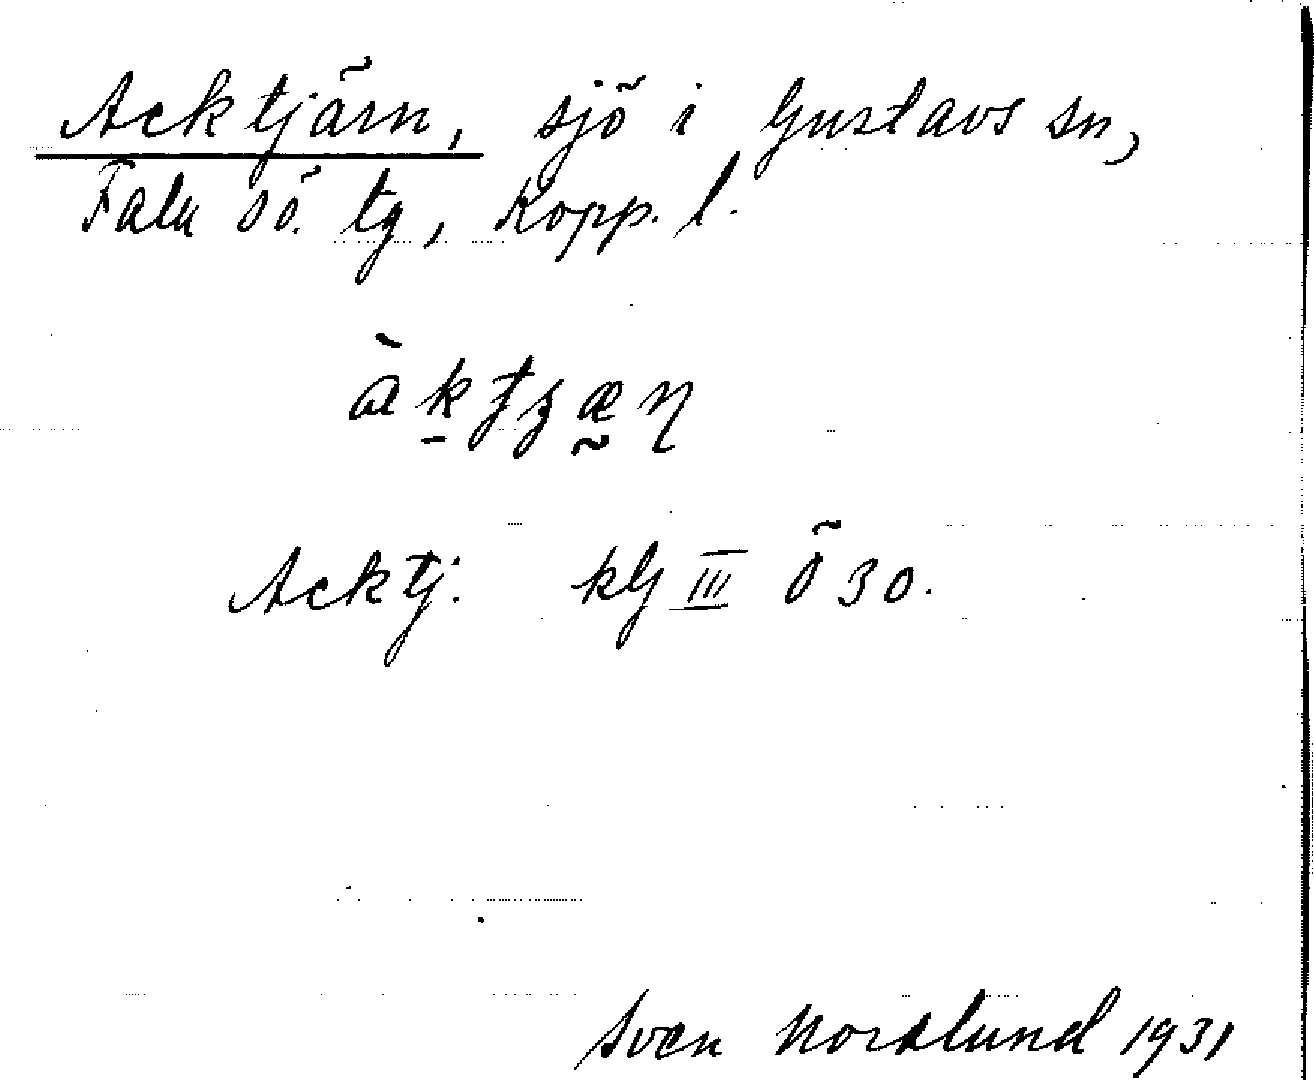 Acktjärn, sjö i Gustavs sn,
Falu sö. tg, Kopp. l.
Acktj. kG III Ö 30.
Sven Nordlund 1931